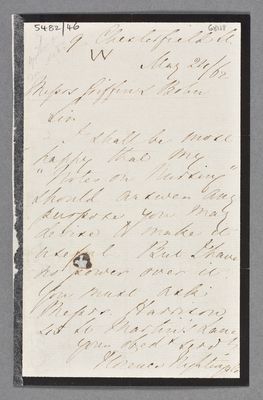 5482/46
9 Chesterfield St
W
May 24/62
Messrs Griffin & Bohn
Sir
I shall be most
happy that my
"Notes on Nursing"
should answer any
purpose you may
desire to make it
useful. But I have
no power over it.
You must ask
Messrs Harrison
St Martin's Lane
your obedt servt
Florence Nightingale